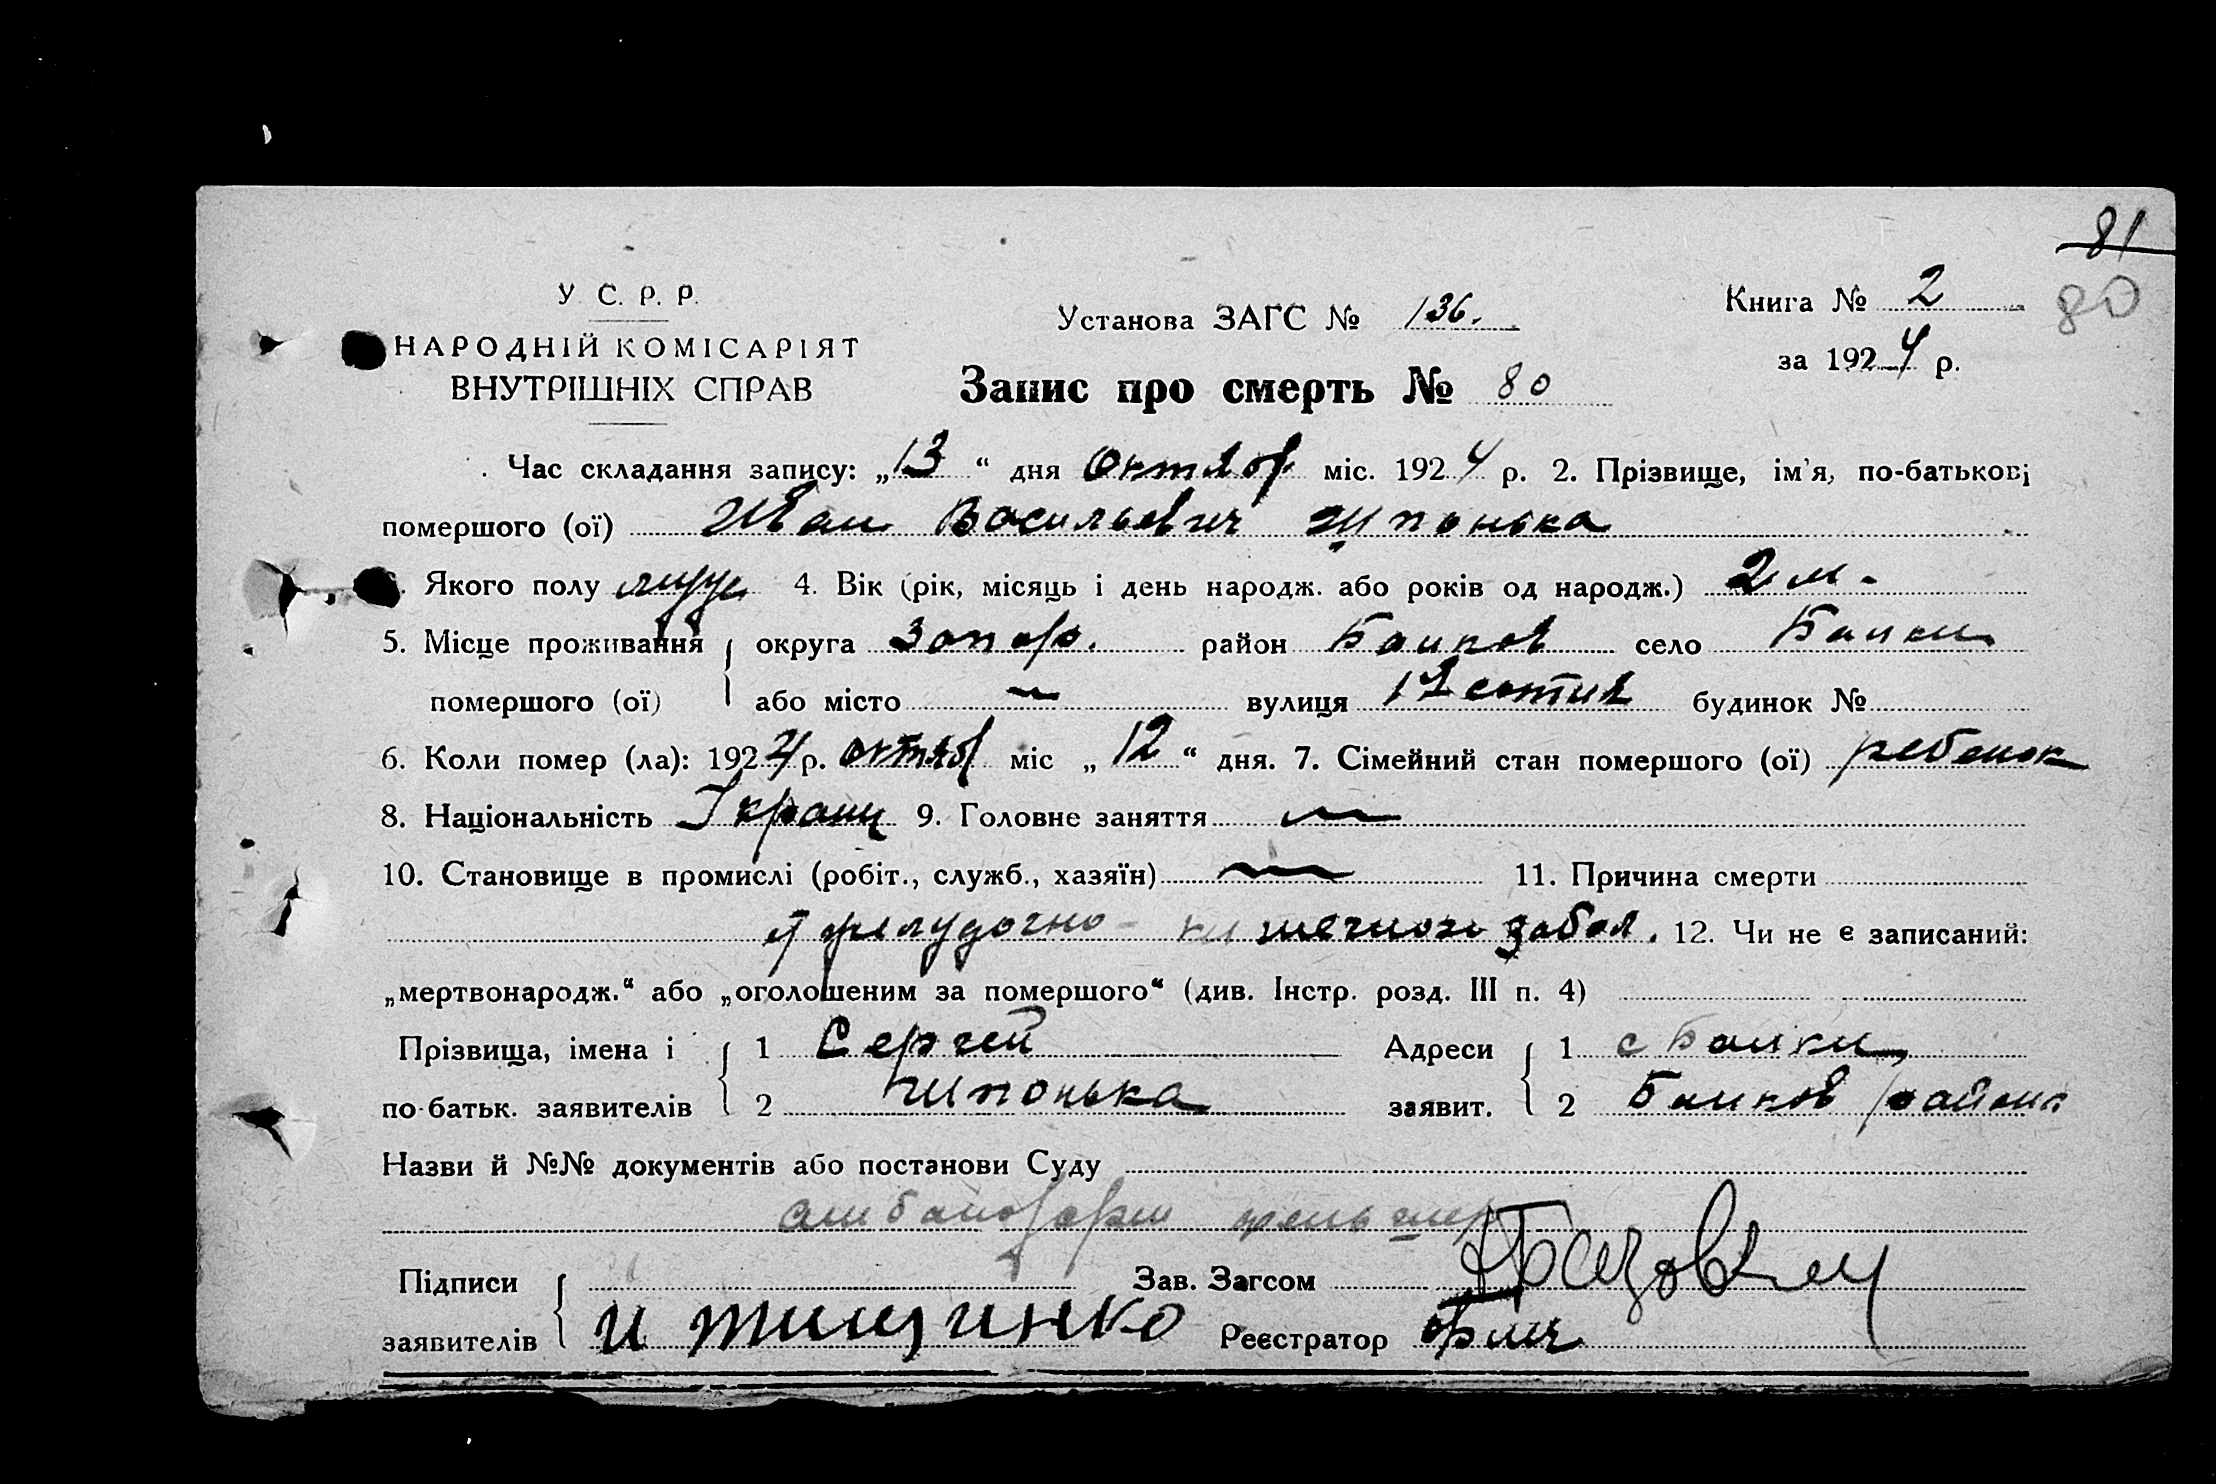 81
80
У С. Р. Р.
НАРОДНІЙ КОМІСАРІЯТ
ВНУТРІШНІХ СПРАВ
Установа ЗАГС № 136.
Книга № 2
за 1924 р.
Запис про смерть № 80
Час складання запису: „13“ дня Октябр міс. 1924 р. 2. Прізвище, ім'я, по-батькові
помершого (ої) Иван Васильевич Шпонька
Якого полу муж 4. Вік (рік, місяць і день народж. або років од народж.) 2 м.
5. Місце проживання округа Запор. район Балков село Балки
помершого (ої) або місто — вулиця 12 сотня будинок №
6. Коли помер (ла): 1924 р. октяб міс „12“ дня. 7. Сімейний стан помершого (ої) ребенок
8. Національність Украин 9. Головне заняття —
10. Становище в промислі (робіт., служб., хазяїн) — 11. Причина смерти
желудочно-кишечного забол. 12. Чи не є записаний:
„мертвонародж.“ або „оголошеним за помершого“ (див. Інстр. розд. III п. 4)
Прізвища, імена і 1 Сергей Адреси 1 с Балки
по-батьк. заявителів 2 Шпонька заявит. 2 Балков района
Назви й №№ документів або постанови Суду
Підписи Зав. Загсом
заявителів Реєстратор